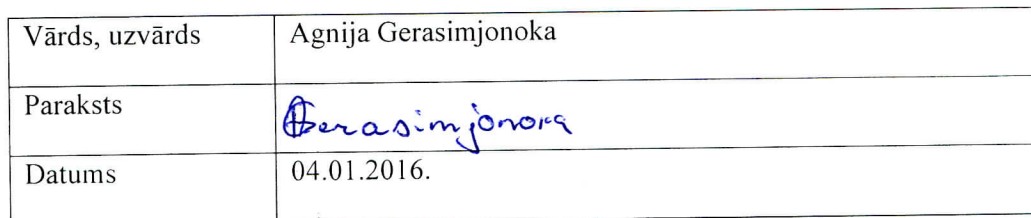 Vārds, uzvārds Agnija Gerasimjonoka
Paraksts AGerasimjonoka
Datums 04.01.2016.